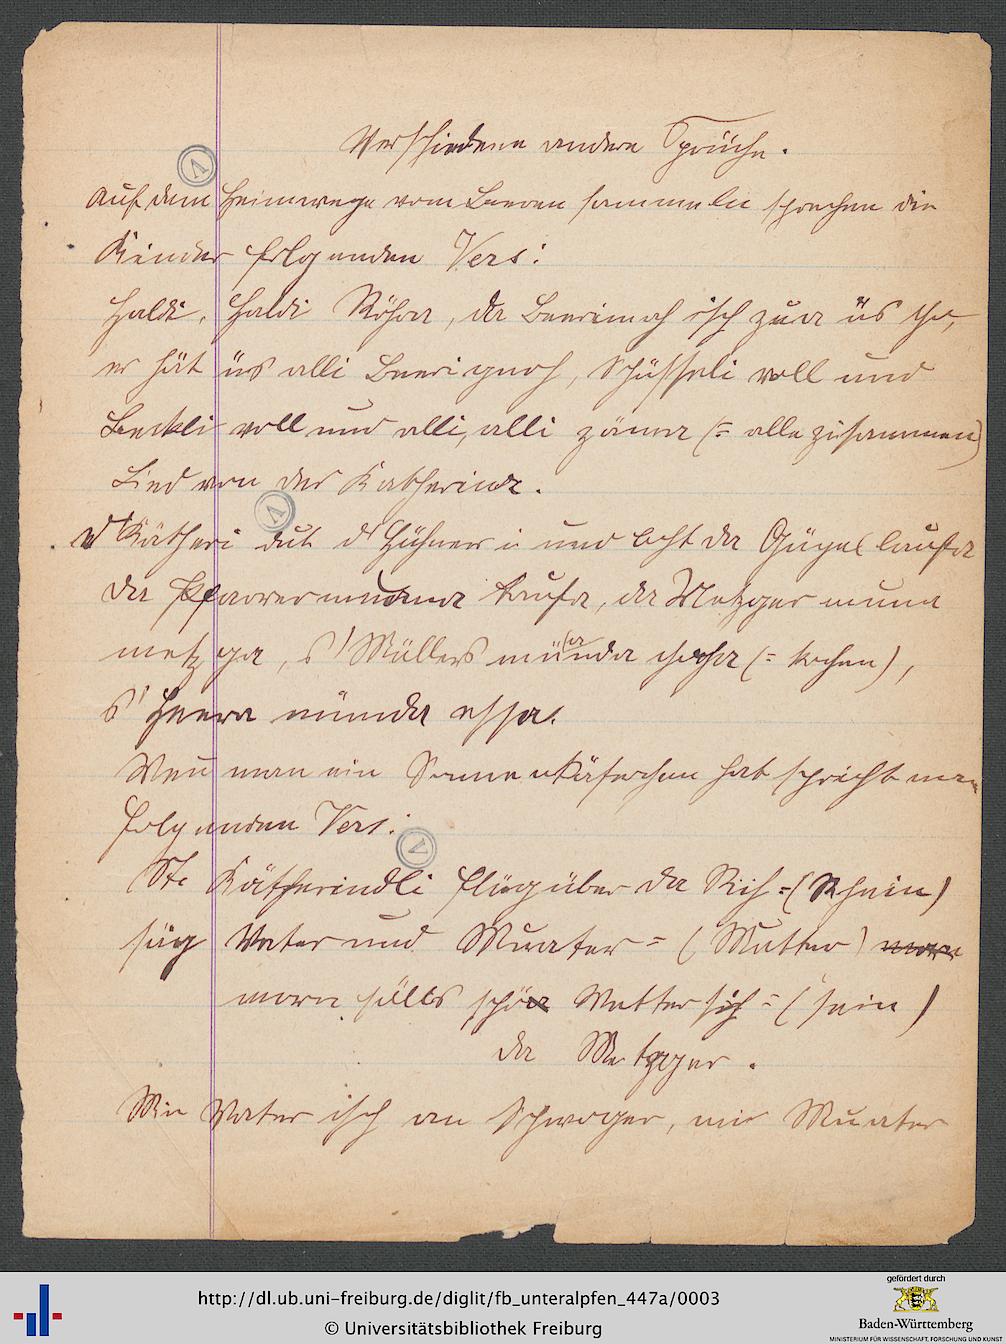 Verschiedene andere Sprüche.
Auf dem Heimwege vom Beeren sammeln sprechen die
Kinder folgenden Vers:
Haldi, Haldi Röhra, da Beerimah isch zua üs cho,
er hät üs alli Beeri gnoh, Schüsseli voll und
Beckli voll und alli, alli zäma (= alle zusammen)
Lied von der Katherina.
d' Kätheri dut d' Hühner i und loht da Gügel laufa
Da Pfarrer muana taufa, da Metzger muna
metzga, s' Müllers müanda chocha (= kochen),
s' Heera münda essa.
Wen man ein Sonnenkäferchen hat spricht man
folgenden Vers:
St. Kätherindli flüg über da Rih = (Rhein)
säg Vater und Muater = (Mutter)
morn sölls schön Wetter sih = (sein)
Da Metzger.
Min Vater isch an Schwoger, mir Muater
http://dl.ub.uni-freiburg.de/diglit/fb_unteralpfen_447a/0003
© Universitätsbibliothek Freiburg
gefördert durch
Baden-Württemberg
MINISTERIUM FÜR WISSENSCHAFT, FORSCHUNG UND KUNST